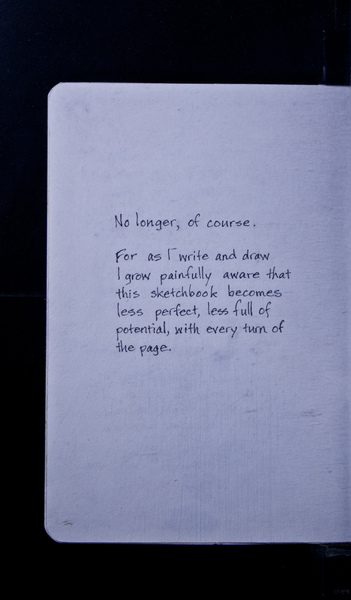 No longer, of course.
For as I write and draw
I grow painfully aware that
this sketchbook becomes
less perfect, less full of
potential, with every turn of
the page.